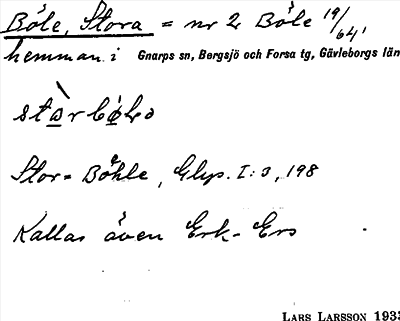 Böle, Stora = nr 2 Böle 19/64,
hemman i Gnarps sn, Bergsjö och Forsa tg, Gävleborgs län
Stor= Böhle, Glys. I: 3, 198
Kallas även Erk-Ers
LARS LARSSON 1933